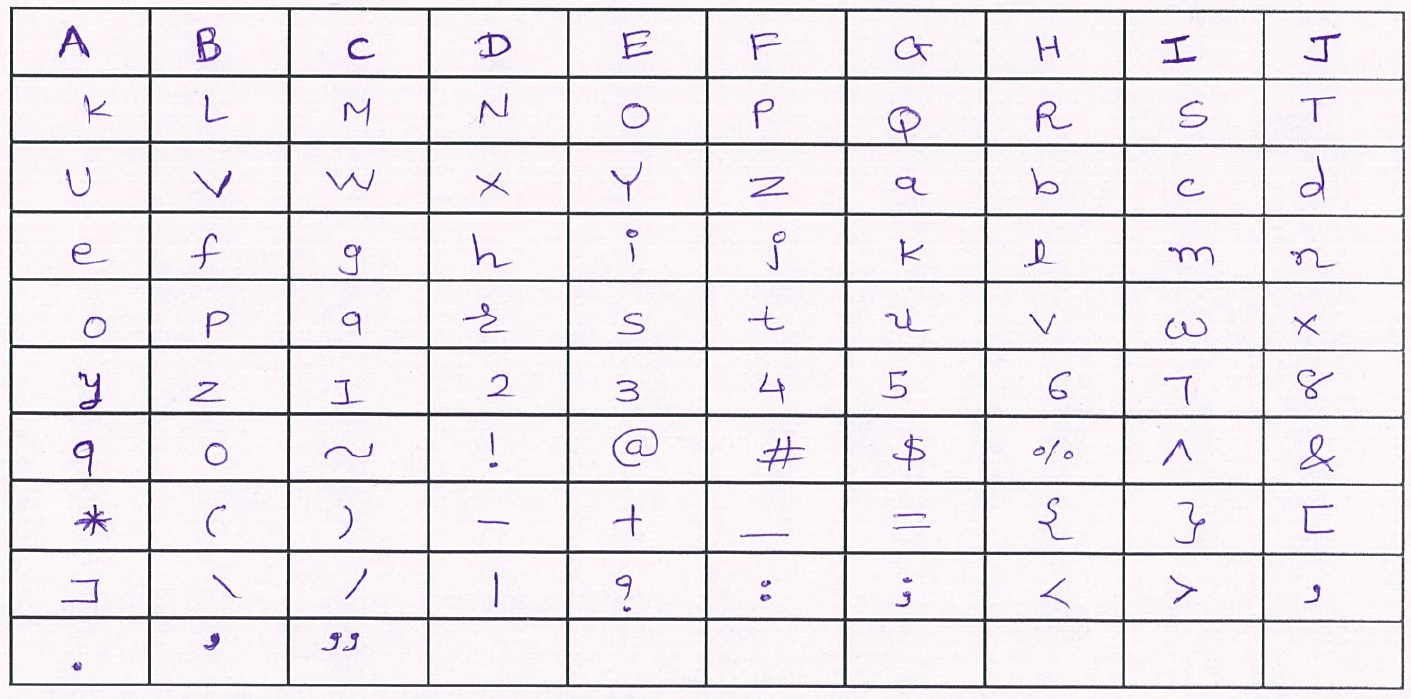 A B C D E F G H I J
K L M N O P Q R S T
U V W X Y Z a b c d
e f g h i j k l m n
o p q r s t u v w x
y z 1 2 3 4 5 6 7 8
9 0 ~ ! @ # $ % ^ &
* ( ) - + _ = { } [
] \ / | ? : ; < > ,
. ' "